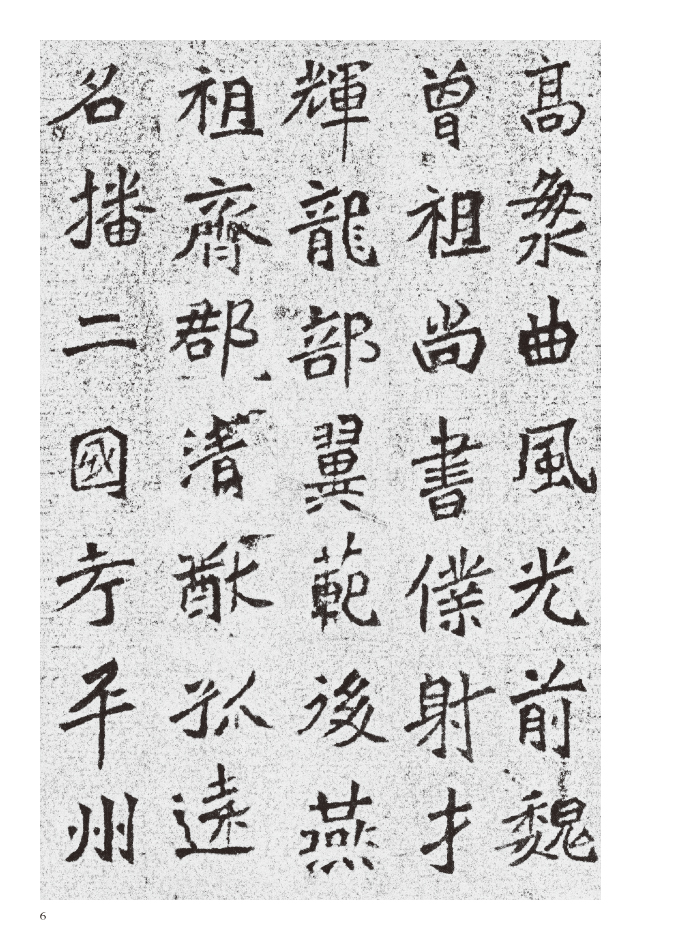 高曲風光前魏
曾祖尚書僕射才
輝龍部翼範後燕
祖齊郡清猷孤遠
名播二國考平州
6